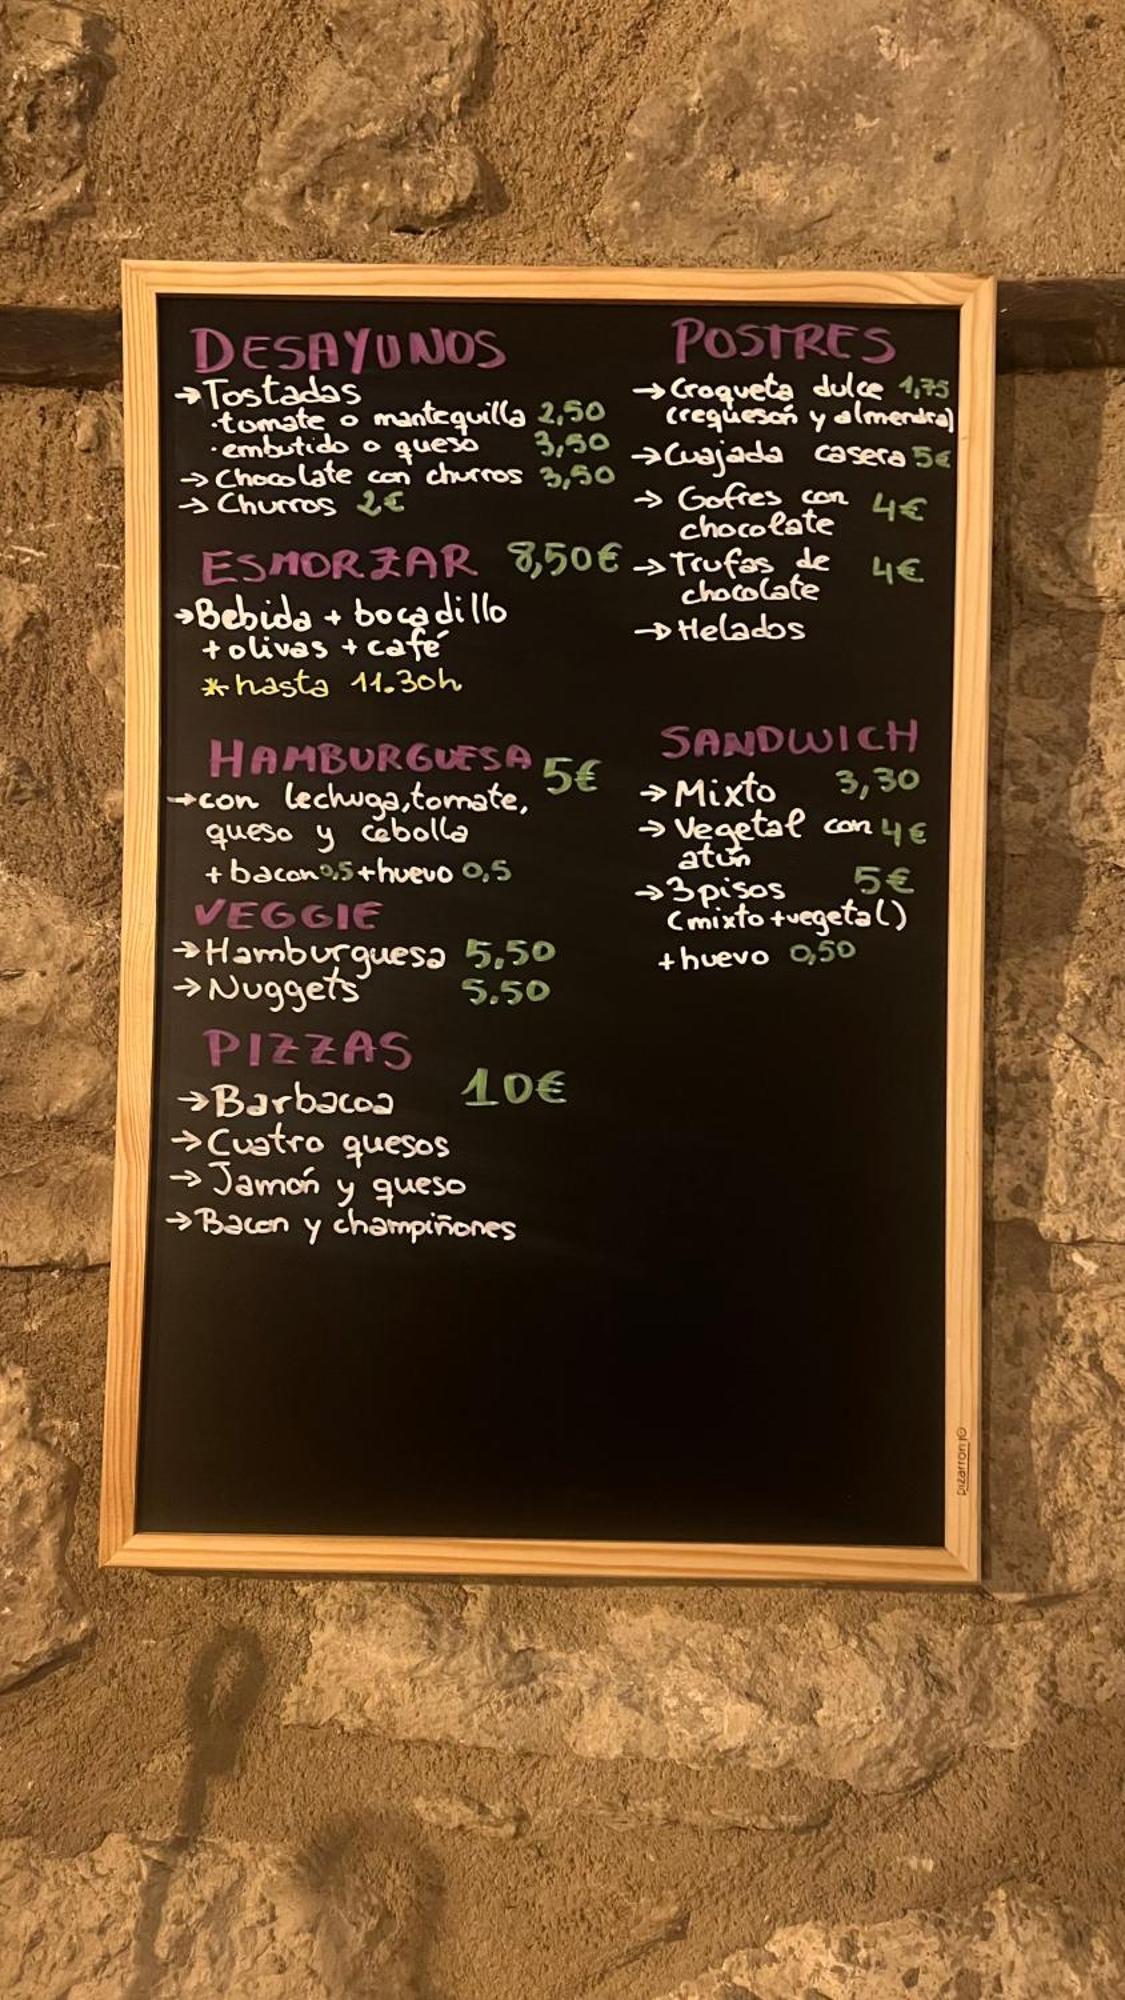 DESAYUNOS
→Tostadas
·tomate o mantequilla 2,50
·embutido o queso 3,50
→Chocolate con churros 3,50
→Churros 2€
ESMORZAR 8,50€
→Bebida + bocadillo
+olivas + café
*hasta 11.30h
HAMBURGUESA 5€
→con lechuga, tomate,
queso y cebolla
+bacon 0,5 +huevo 0,5
VEGGIE
→Hamburguesa 5,50
→Nuggets 5.50
PIZZAS
10€
→Barbacoa
→Cuatro quesos
→Jamón y queso
→Bacon y champiñones
POSTRES
→Croqueta dulce 1,75
(requesón y almendra)
→Cuajada casera 5€
→Gofres con 4€
chocolate
→Trufas de 4€
chocolate
→Helados
SANDWICH
→Mixto 3,30
→Vegetal con 4€
atún
→3 pisos 5€
(mixto+vegetal)
+huevo 0,50
pizarronjo